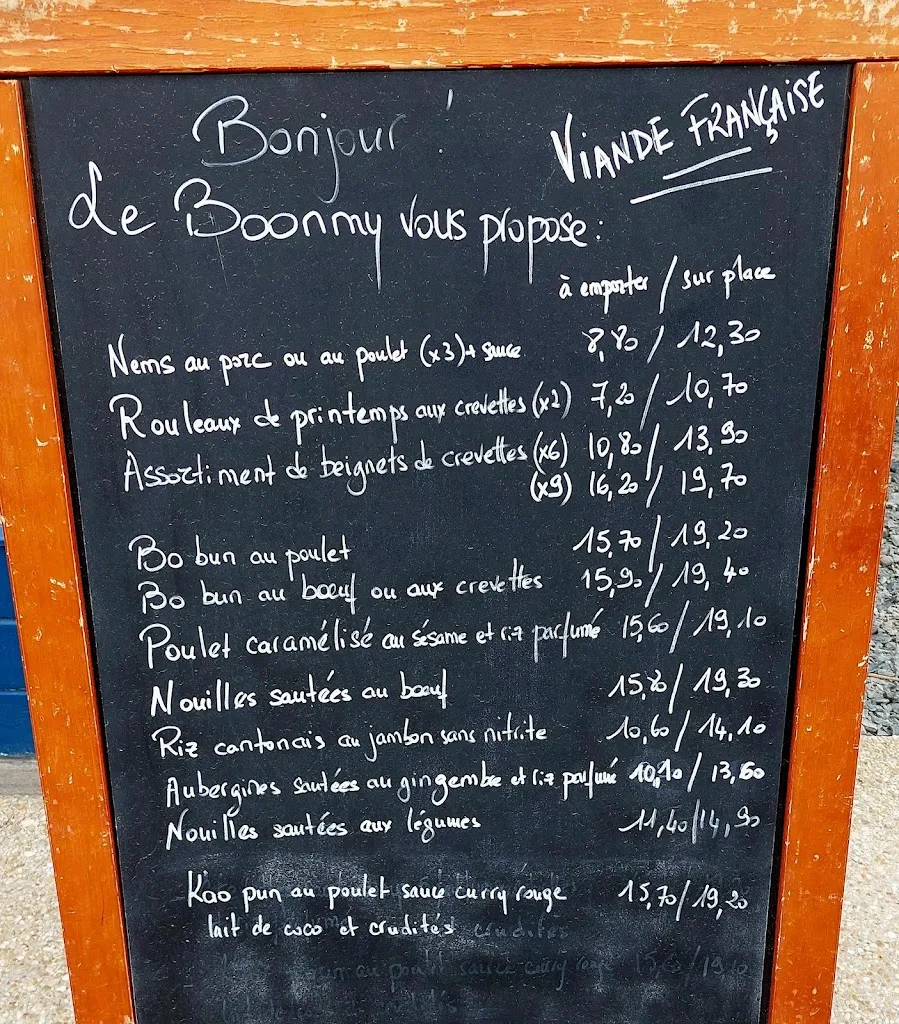 Bonjour !
VIANDE FRANÇAISE
Le Boonmy vous propose :
à emporter / sur place
Nems au porc ou au poulet (x3) + sauce 8,80 / 12,30
Rouleaux de printemps aux crevettes (x2) 7,20 / 10,70
Assortiment de beignets de crevettes (x6) 10,80 / 13,90
(x9) 16,20 / 19,70
Bo bun au poulet 15,70 / 19,20
Bo bun au bœuf ou aux crevettes 15,90 / 19,40
Poulet caramélisé au sésame et riz parfumé 15,60 / 19,10
Nouilles sautées au bœuf 15,80 / 19,30
Riz cantonais au jambon sans nitrite 10,60 / 14,10
Aubergines sautées au gingembre et riz parfumé 10,10 / 13,60
Nouilles sautées aux légumes 11,40 / 14,90
Kao pun au poulet sauce curry rouge 15,70 / 19,20
lait de coco et crudités crudités
au poulet sauce curry rouge